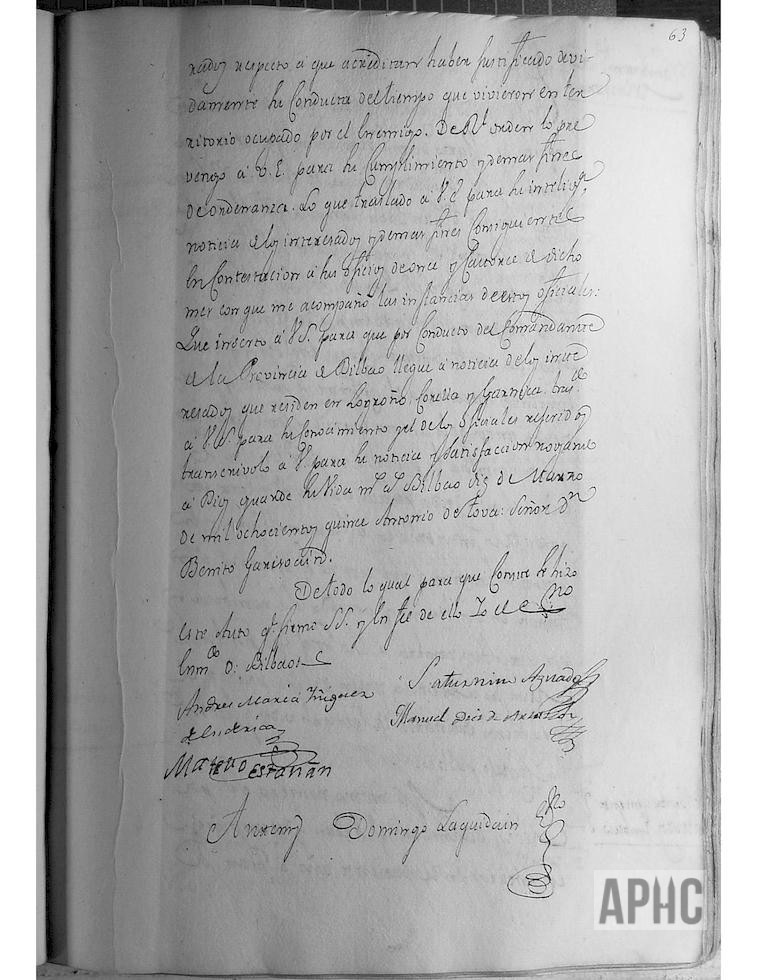 63
resados respecto á que acreditan haber justificado devi-
damente su Conducta del tiempo que vivieron en ter
ritorio ocupado por el Enemigo. De Rl. orden lo pre
vengo á V. E. para su Cumplimiento y demas fines
de ordenanza. Lo que traslado á V. E. para su inteligª.
noticia de los interesados y demas fines Consiguientes
en Contestacion á sus oficios de once y Catorce de dicho
mes con que me acompañó las instancias de estos oficiales:
Que inserto á V.S. para que por Conducto del Comandante
de la Provincia de Bilbao llegue á noticia de los inte
resados que residen en Logroño, Corella y
á V.S. para su Conocimiento y el de los oficiales referidos
transcrivolo á V. para su noticia y satisfaccion rogando
á Dios guarde su Vida ms. as. Bilbao diez de Marzo
de mil ochocientos quince Antonio de Tova: Señor Dn.
Benito
De todo lo qual para que Conste se hizo
este Auto q. firmó SS. y en fee de ello Yo el Esno.
Enmdo. O: Bilbao:
Andres Maria Yñiguez
Saturnino Aguado
Manuel Diez de
Mateo Estañan
Antemi Domingo Laquidain
APHC